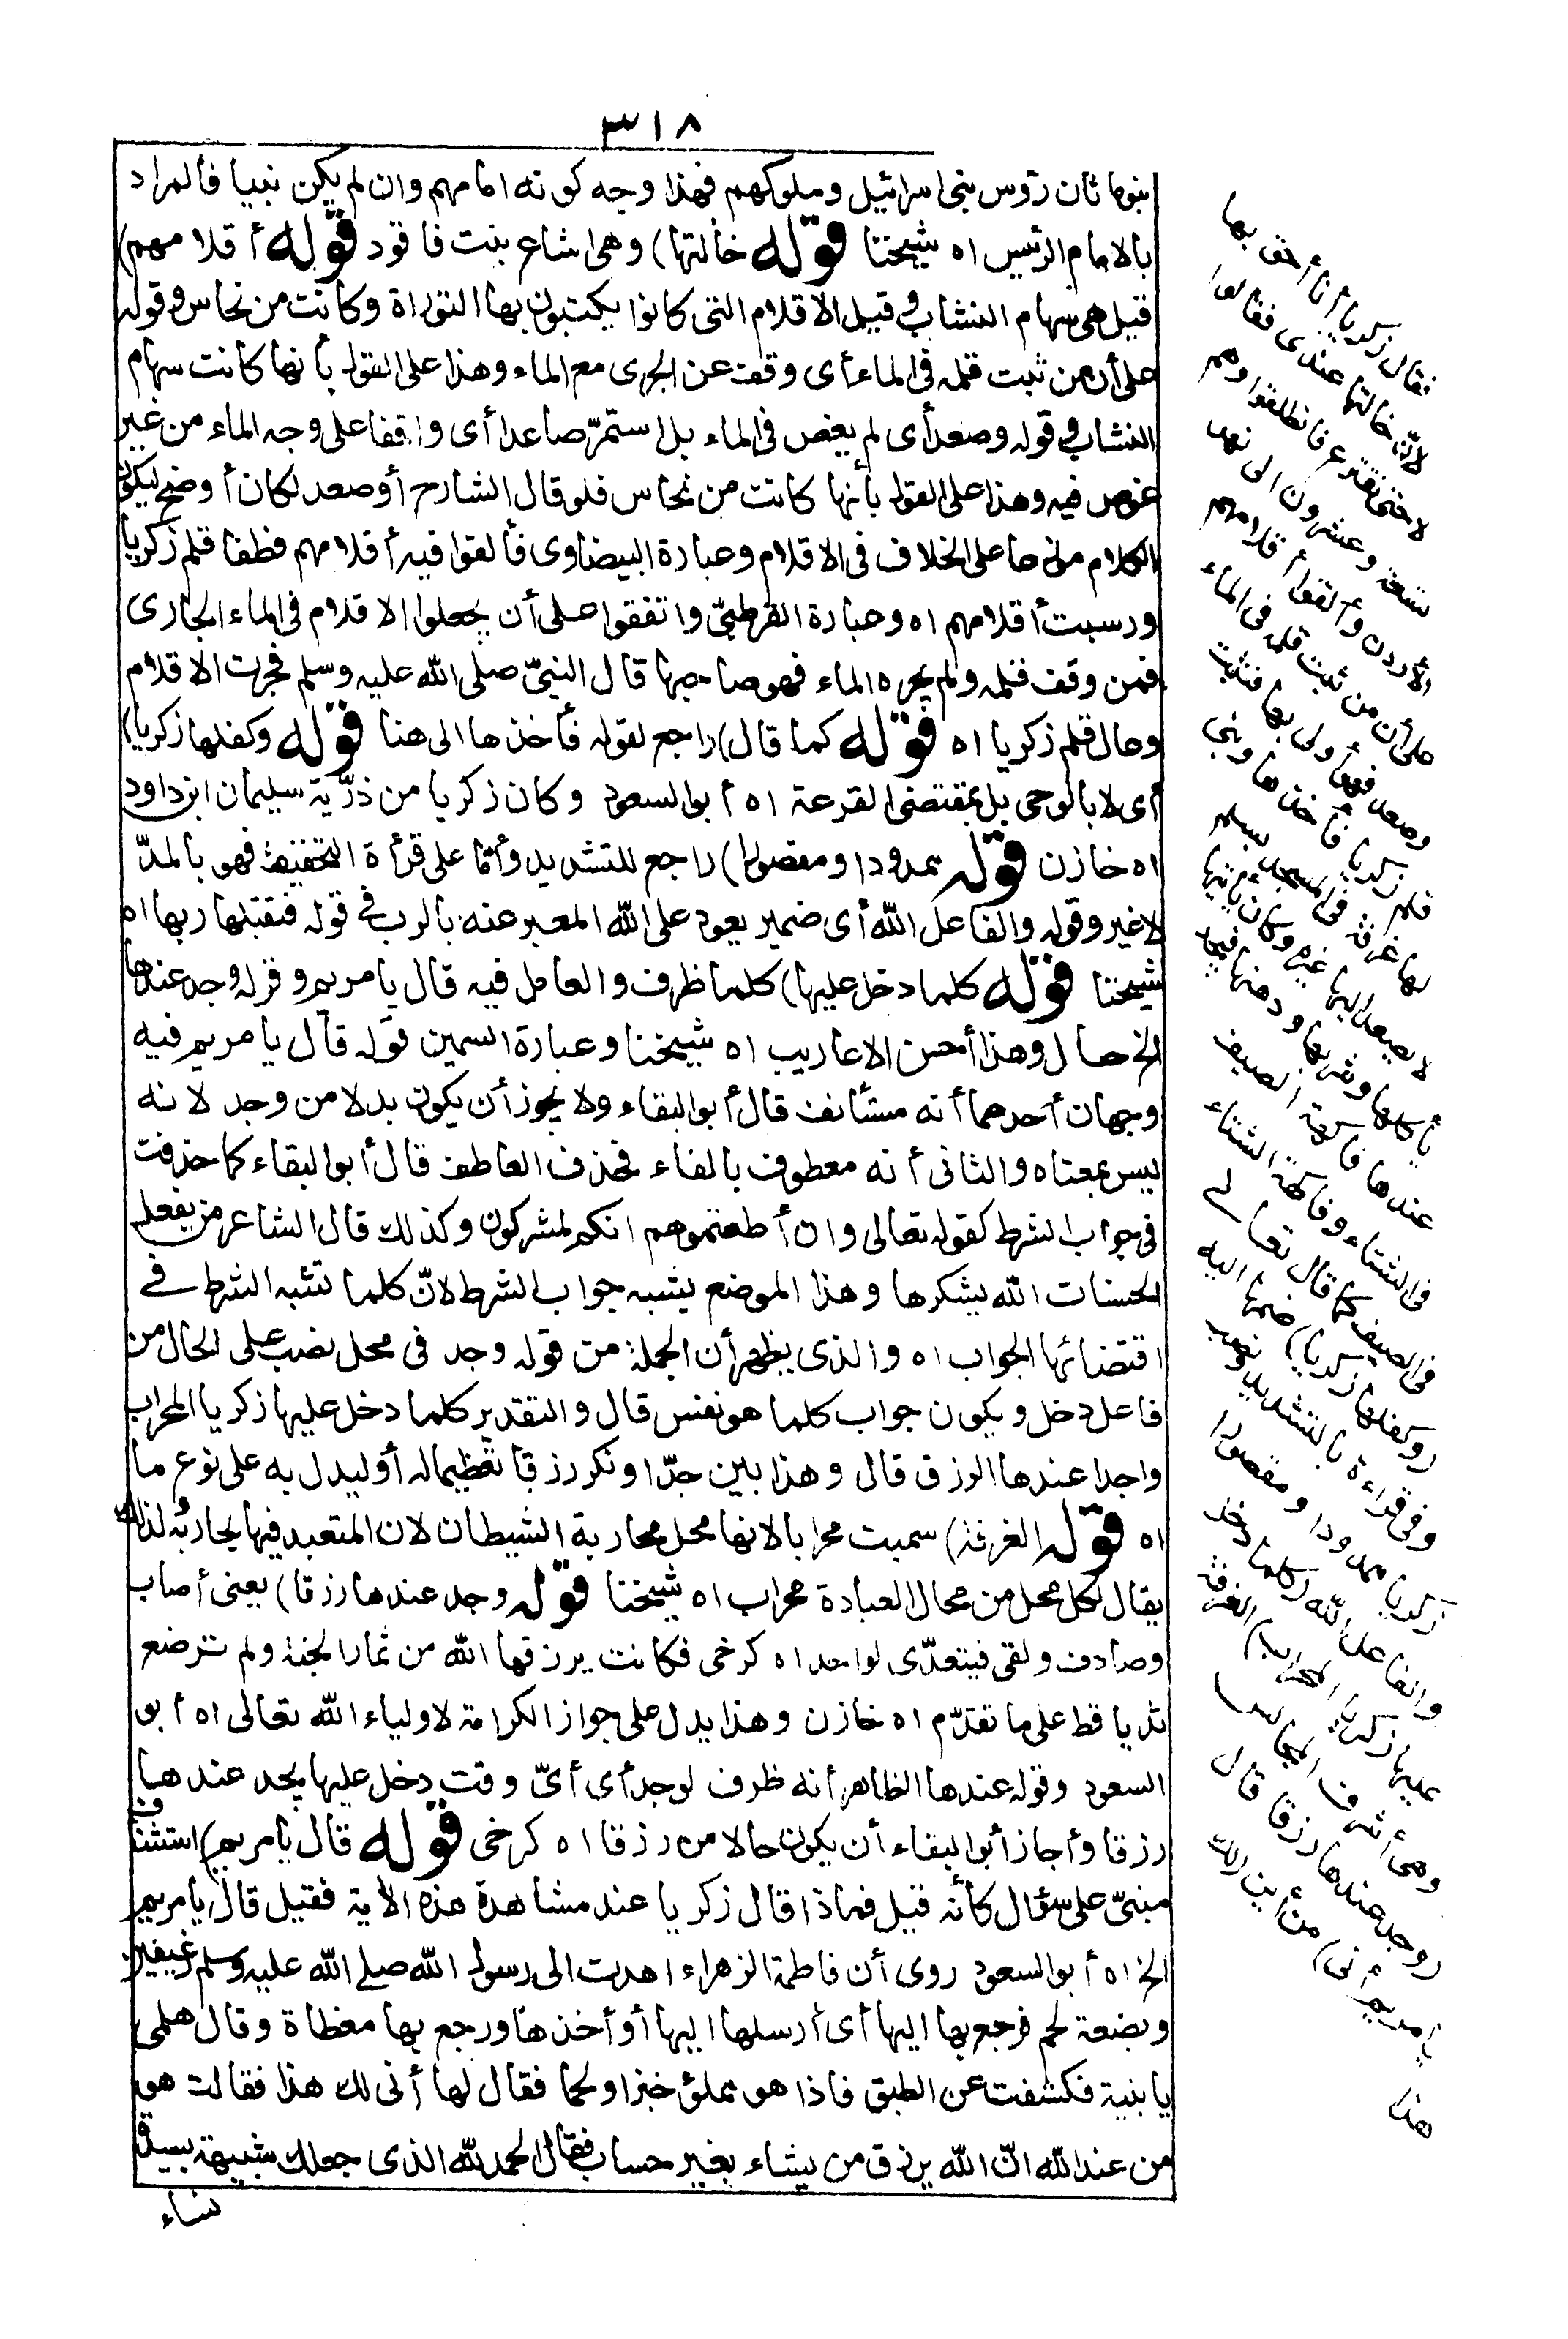 ٣١٨
بنو ماثان رؤس بنى اسرائيل وملوكهم فهذا وجه كونه امامهم وان لم يكن نبيا فالمراد
بالامام الرئيس اه شيخنا قوله خالتها) وهى شاع بنت فاقود قوله أقلامهم)
قيل هى سهام النشاب وقيل الاقلام التى كانوا يكتبون بها التوراة وكانت من نحاس وقوله
على أن من ثبت قلمه فى الماء أى وقف عن الجرى مع الماء وهذا على القول بأنها كانت سهام
النشاب وقوله وصعد أى لم يغص فى الماء بل استمرّ صاعدا أى واقفا على وجه الماء من غير
غوص فيه وهذا على القول بأنها كانت من نحاس فلو قال الشارح أو صعد لكان أوضح ليكون
الكلام موزعا على الخلاف فى الاقلام وعبارة البيضاوى فألقوا فيه أقلامهم فطفا قلم زكريا
ورسبت أقلامهم اه وعبارة القرطبىّ واتفقوا على أن يجعلوا الاقلام فى الماء الجارى
فمن وقف قلمه ولم يجره الماء فهو صاحبها قال النبىّ صلى الله عليه وسلم فجرت الاقلام
وعال قلم زكريا اه قوله كما قال) راجع لقوله فأخذها الى هنا قوله وكفلها زكريا)
أى لا بالوحى بل بمقتضى القرعة اه أبو السعود وكان زكريا من ذرّية سليمان ابن داود
اه خازن قوله ممدودا ومقصورا) راجع للتشديد وأمّا على قرأة التخفيف فهو بالمدّ
لا غير وقوله والفاعل الله أى ضمير يعود على الله المعبر عنه بالرب فى قوله فتقبلها ربها اه
شيخنا قوله كلما دخل عليها) كلما ظرف والعامل فيه قال يا مريم وقوله وجد عندها
الخ حال وهذا أحسن الاعاريب اه شيخنا وعبارة السمين قوله قال يا مريم فيه
وجهان أحدهما أنه مستأنف قال أبو البقاء ولا يجوز أن يكون بدلا من وجد لانه
ليس بمعناه والثانى أنه معطوف بالفاء فحذف العاطف قال أبو البقاء كما حذفت
فى جواب الشرط كقوله تعالى وان أطعتموهم انكم لمشركون وكذلك قال الشاعر من يفعل
الحسنات الله يشكرها وهذا الموضع يشبه جواب الشرط لانّ كلما تشبه الشرط فى
اقتضائها الجواب اه والذى يظهر أن الجملة من قوله وجد فى محل نصب على الحال من
فاعل دخل ويكون جواب كلما هو نفس قال والتقدير كلما دخل عليها زكريا المحراب
واجدا عندها الرزق قال وهذا بين جدّا ونكر رزقا تعظيما له أو ليدل به على نوع ما
اه قوله الغرفة) سميت محرابا لانها محل محاربة الشيطان لان المتعبد فيها يحاربه ولذلك
يقال لكل محل من محال العبادة محراب اه شيخنا قوله وجد عندها رزقا) يعنى أصاب
وصادف ولقى فيتعدّى لواحد اه كرخى فكانت يرزقها الله من ثمار الجنة ولم ترضع
ثديا قط على ما تقدّم اه خازن وهذا يدل على جواز الكرامة لاولياء الله تعالى اه أبو
السعود وقوله عندها الظاهر أنه ظرف لوجد أى أىّ وقت دخل عليها يجد عندها
رزقا وأجاز أبو البقاء أن يكون حالا من رزقا اه كرخى قوله قال يا مريم) استئناف
مبنىّ على سؤال كأنه قيل فماذا قال زكريا عند مشاهدة هذه الآية فقيل قال يا مريم
الخ اه أبو السعود روى أن فاطمة الزهراء اهدت الى رسول الله صلى الله عليه وسلم رغيفين
وبضعة لحم فرجع بها اليها أى أرسلها اليها أو أخذها ورجع بها مغطاة وقال هلمى
يا بنية فكشفت عن الطبق فاذا هو مملؤ خبزا ولحما فقال لها أنى لك هذا فقالت هو
من عند الله انّ الله يرزق من يشاء بغير حساب فقال الحمد لله الذى جعلك شبيهة بسيدة
نساء
فقال زكريا أنا أحق بها
لانّ خالتها عندى فقالوا
لا حتى نقترع فانطلقوا وهم
تسعة وعشرون الى نهر
الأردن وألقوا أقلامهم
على أن من ثبت قلمه فى الماء
وصعد فهو أولى بها فثبت
قلم زكريا فأخذها وبنى
لها غرفة فى المسجد بسلم
لا يصعد اليها غيره وكان يأتيها
بأكلها وشربها ودهنها فيجد
عندها فاكهة الصيف
فى الشتاء وفاكهة الشتاء
فى الصيف كما قال تعالى
(وكفلها زكريا) ضمها اليه
وفى قراءة بالتشديد ونصب
زكريا ممدودا ومقصورا
والفاعل الله (كلما دخل
عليها زكريا المحراب) الغرفة
وهى أشرف المجالس
(وجد عندها رزقا قال
يا مريم أنى) من أين (لك
هذا